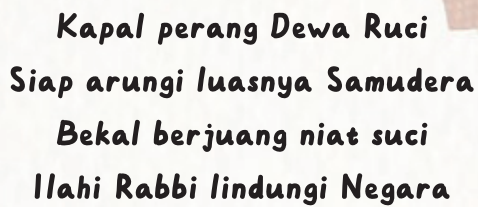 Kapal perang Dewa Ruci
Siap arungi luasnya Samudera
Bekal berjuang niat suci
Ilahi Rabbi lindungi Negara